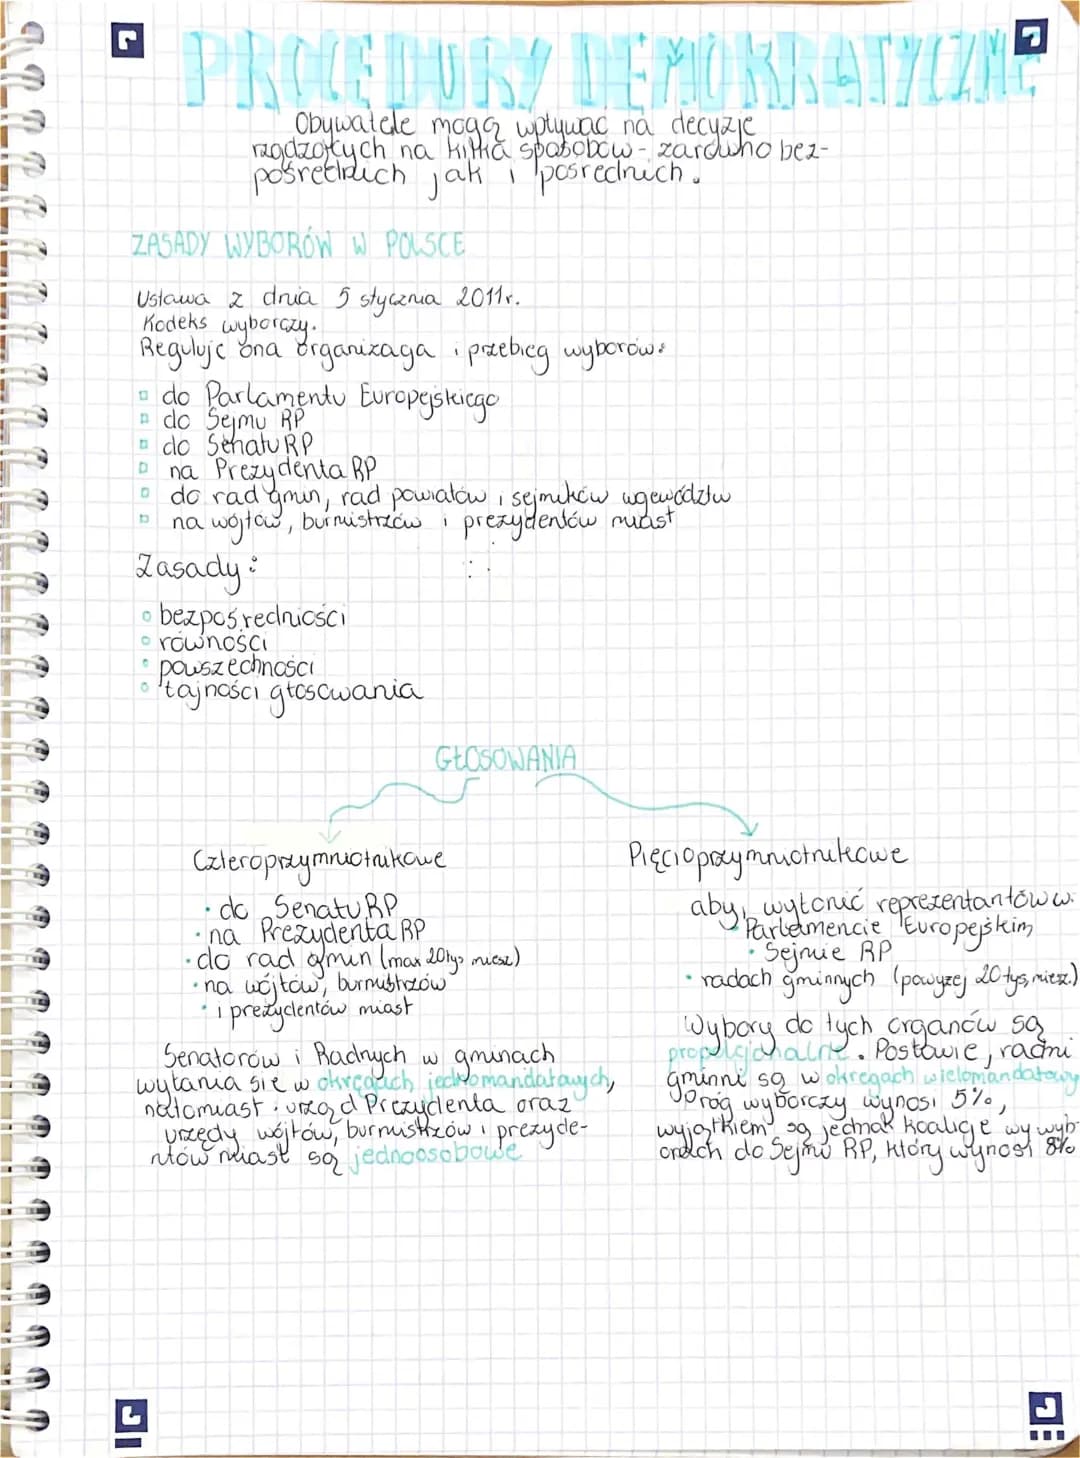 PROCEDURY DEMOKRATYCZNE
Obywatele mogą wpływać na decyzje
rządzących na kilka sposobów - zarówno bez-
pośrednich jak i pośrednich.
ZASADY WYBORÓW W POLSCE
Ustawa z dnia 5 stycznia 2011r.
Kodeks wyborczy.
Reguluje ona organizaga i przebieg wyborów:
do Parlamentu Europejskiego
do Sejmu RP
do Senatu RP
na Prezydenta RP
do rad gmin, rad powiatów i sejmików
na wójtów, burmistrzów i prezydentów miast
Zasady:
bezpośredniości
równości
powszechności
tajności głosowania
GŁOSOWANIA
Czteroprzymniotnikowe
· do Senatu RP
· na Prezydenta RP
· do rad gmin (max 20tys miesz)
· na wójtów, burmistrzów
· i prezydentów miast
Senatorów i Radnych w gminach
wyłania się w okręgach jednomandatowych,
natomiast urząd Prezydenta oraz
urzędy wójtów, burmistrzów i prezyde-
ntów miast są jednoosobowe
Pięcioprzymniotnikowe
aby wyłonić reprezentantów w:
· Parlamencie Europejskim
· Sejmie RP
· radach gminnych (powyżej 20 tys, miesz.)
Wybory do tych organów są
proporcjonalne. Posłowie, radni
gminni są w okręgach wielomandatowy
Próg wyborczy wynosi 5%,
wyjątkiem są jednak koalicje w wyb-
orach do Sejmu RP, który wynosi 8%